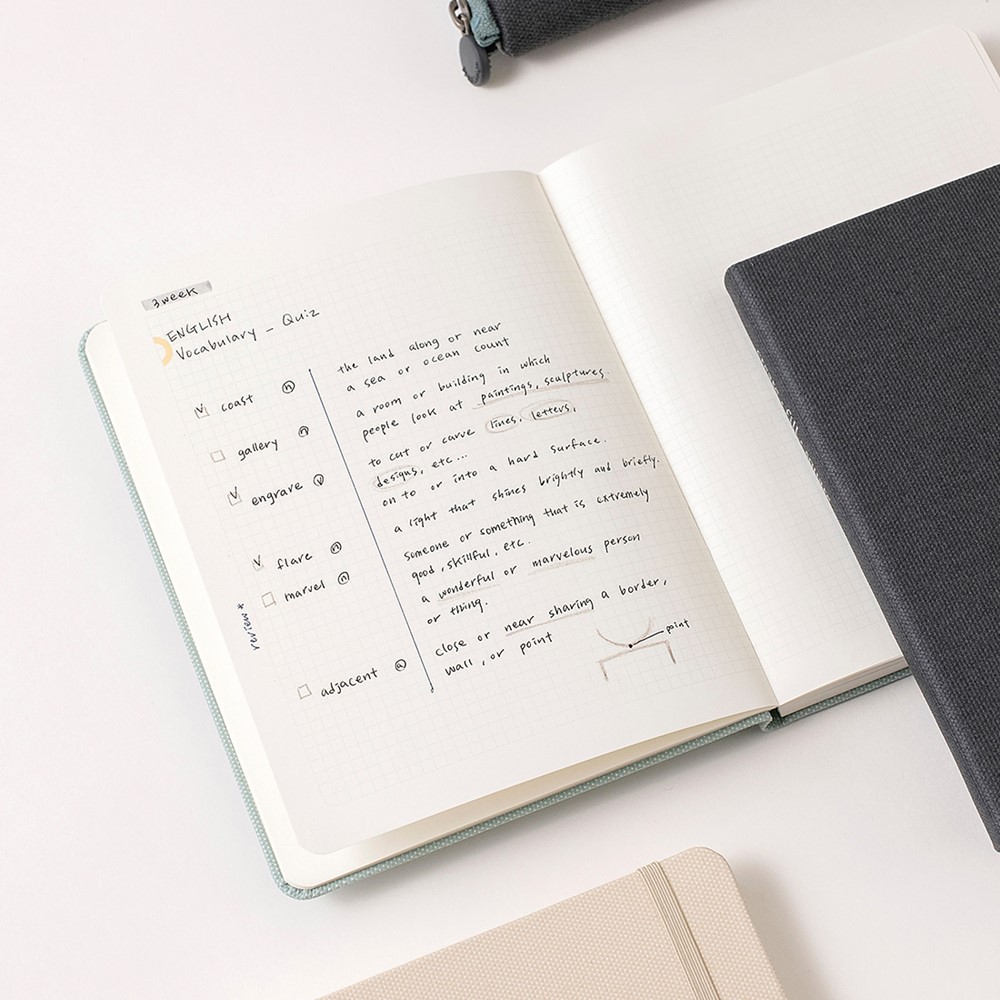 3 week
ENGLISH
Vocabulary - Quiz
coast n
the land along or near
a sea or ocean count
gallery n
a room or building in which
people look at paintings, sculptures.
engrave v
to cut or carve lines, letters,
designs, etc...
on to or into a hard surface.
flare n
a light that shines brightly and briefly.
marvel n
someone or something that is extremely
good, skillful, etc.
a wonderful or marvelous person
or thing.
review *
adjacent a
close or near sharing a border,
wall, or point
point